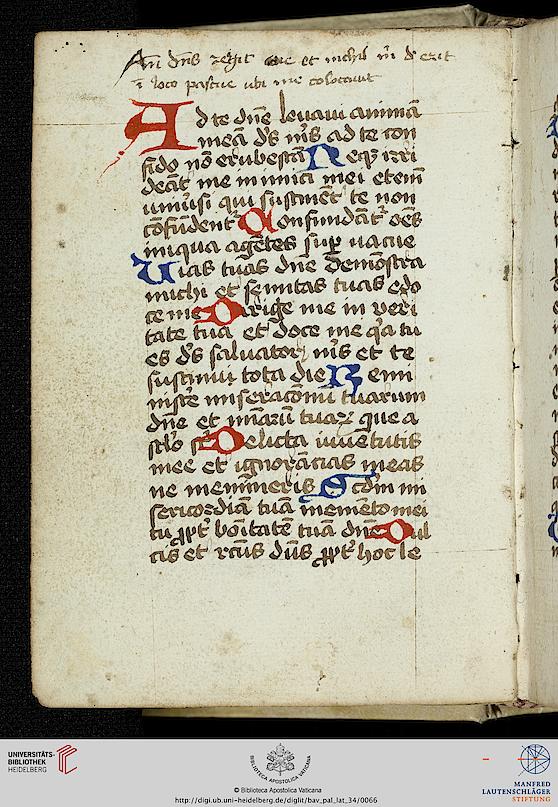 An̄ dn̄s regit me et nichil m̄ deerit
ī loco pascue ubi me colocauit
Ad te dn̄e leuaui animā
meā ds̄ ms̄ ad te con
fido nō erubescā Neq; irri
deāt me inimici mei etem̄
uniu̇si qui sustinēt te non
cōfūdent̄ Confundāt̄ oēs
iniqua agētes sup̄ uacue
Uias tuas dn̄e demōstra
michi et semitas tuas edo
ce me Dirige me in veri
tate tua et doce me q̄a tu
es ds̄ saluator ms̄ et te
sustinui tota die Remi
niscē miseracōnū tuarum
dn̄e et miāru tuar̄ que a
sclo s Delicta iuuētutis
mee et ignorācias meas
ne memineris Scdm̄ mi
sericordiā tuā memēto mei
tu ꝓpt̄ bōitatē tuā dn̄e Dul
cis et rcūs dn̄s ꝓpt̄ hoc le
UNIVERSITÄTS-
BIBLIOTHEK
HEIDELBERG
BIBLIOTECA APOSTOLICA VATICANA
© Biblioteca Apostolica Vaticana
http://digi.ub.uni-heidelberg.de/diglit/bav_pal_lat_34/0066
MANFRED
LAUTENSCHLÄGER
STIFTUNG